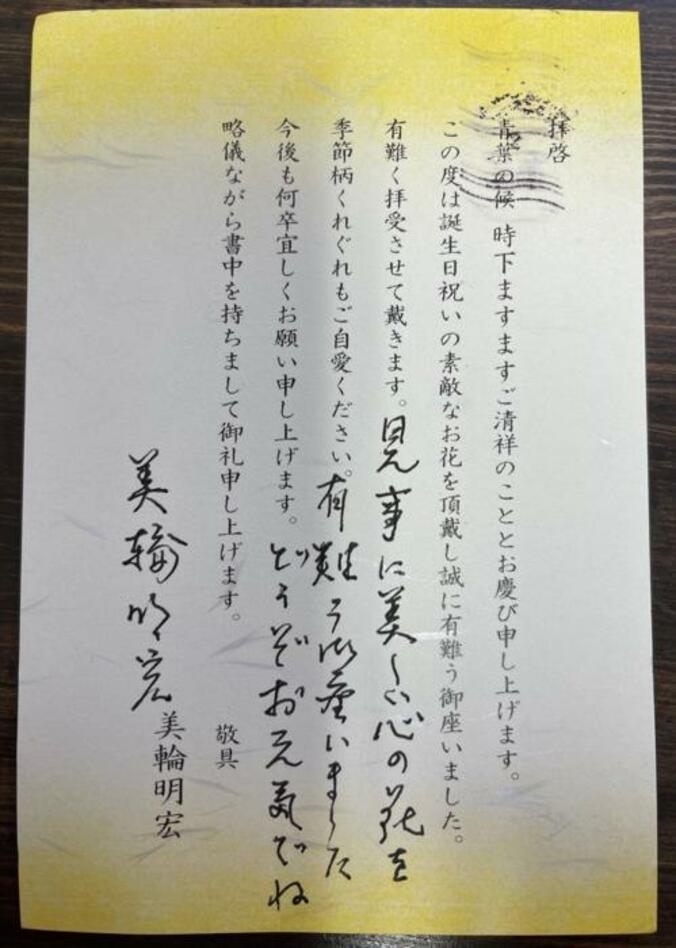 拝啓
青葉の候 時下ますますご清祥のこととお慶び申し上げます。
この度は誕生日祝いの素敵なお花を頂戴し誠に有難う御座いました。
有難く拝受させて戴きます。見事に美しい心の花を
季節柄くれぐれもご自愛ください。有難う御座いました
今後も何卒宜しくお願い申し上げます。どうぞお元気でね
略儀ながら書中を持ちまして御礼申し上げます。
敬具
美輪明宏
美輪明宏